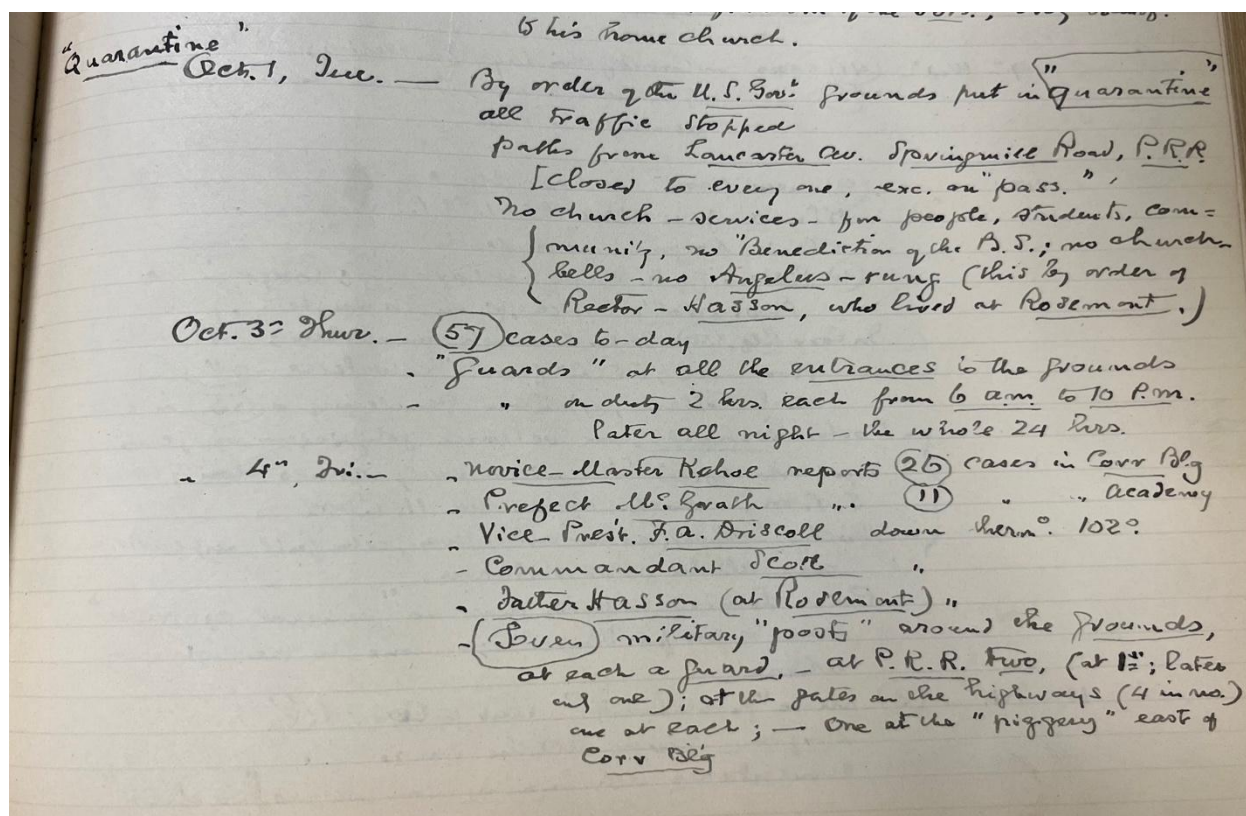 to his home church.
"Quarantine"
Oct. 1, Tue. — By order of the U.S. Gov.t grounds put in "quarantine"
all traffic stopped
paths from Lancaster Av. Springmill Road, P.R.R.
[closed to every one, exc. on "pass."
No church – services – for people, students, com=
munity, no "Benediction of the B.S.; no church-
bells – no Angelus – rung (this by order of
Rector – Hasson, who lived at Rosemont.)
Oct. 3d Thur. – (57) cases to-day
- "Guards" at all the entrances to the grounds
- " on duty 2 hrs. each from 6 a.m. to 10 P.m.
later all night – the whole 24 hrs.
" 4th, Fri. – - Novice-Master Kehoe reports (25) cases in Corr Blg
- Prefect McGrath " (11) " " Academy
- Vice-Prest. F.A. Driscoll down therm. 102°
- Commandant Scott "
- Father Hasson (at Rosemont) "
- (Seven) military "posts" around the grounds,
at each a guard, – at P.R.R. two, (at 1st; later
only one); at the gates on the highways (4 in no.)
one at each; — One at the "piggery" east of
Corr Blg